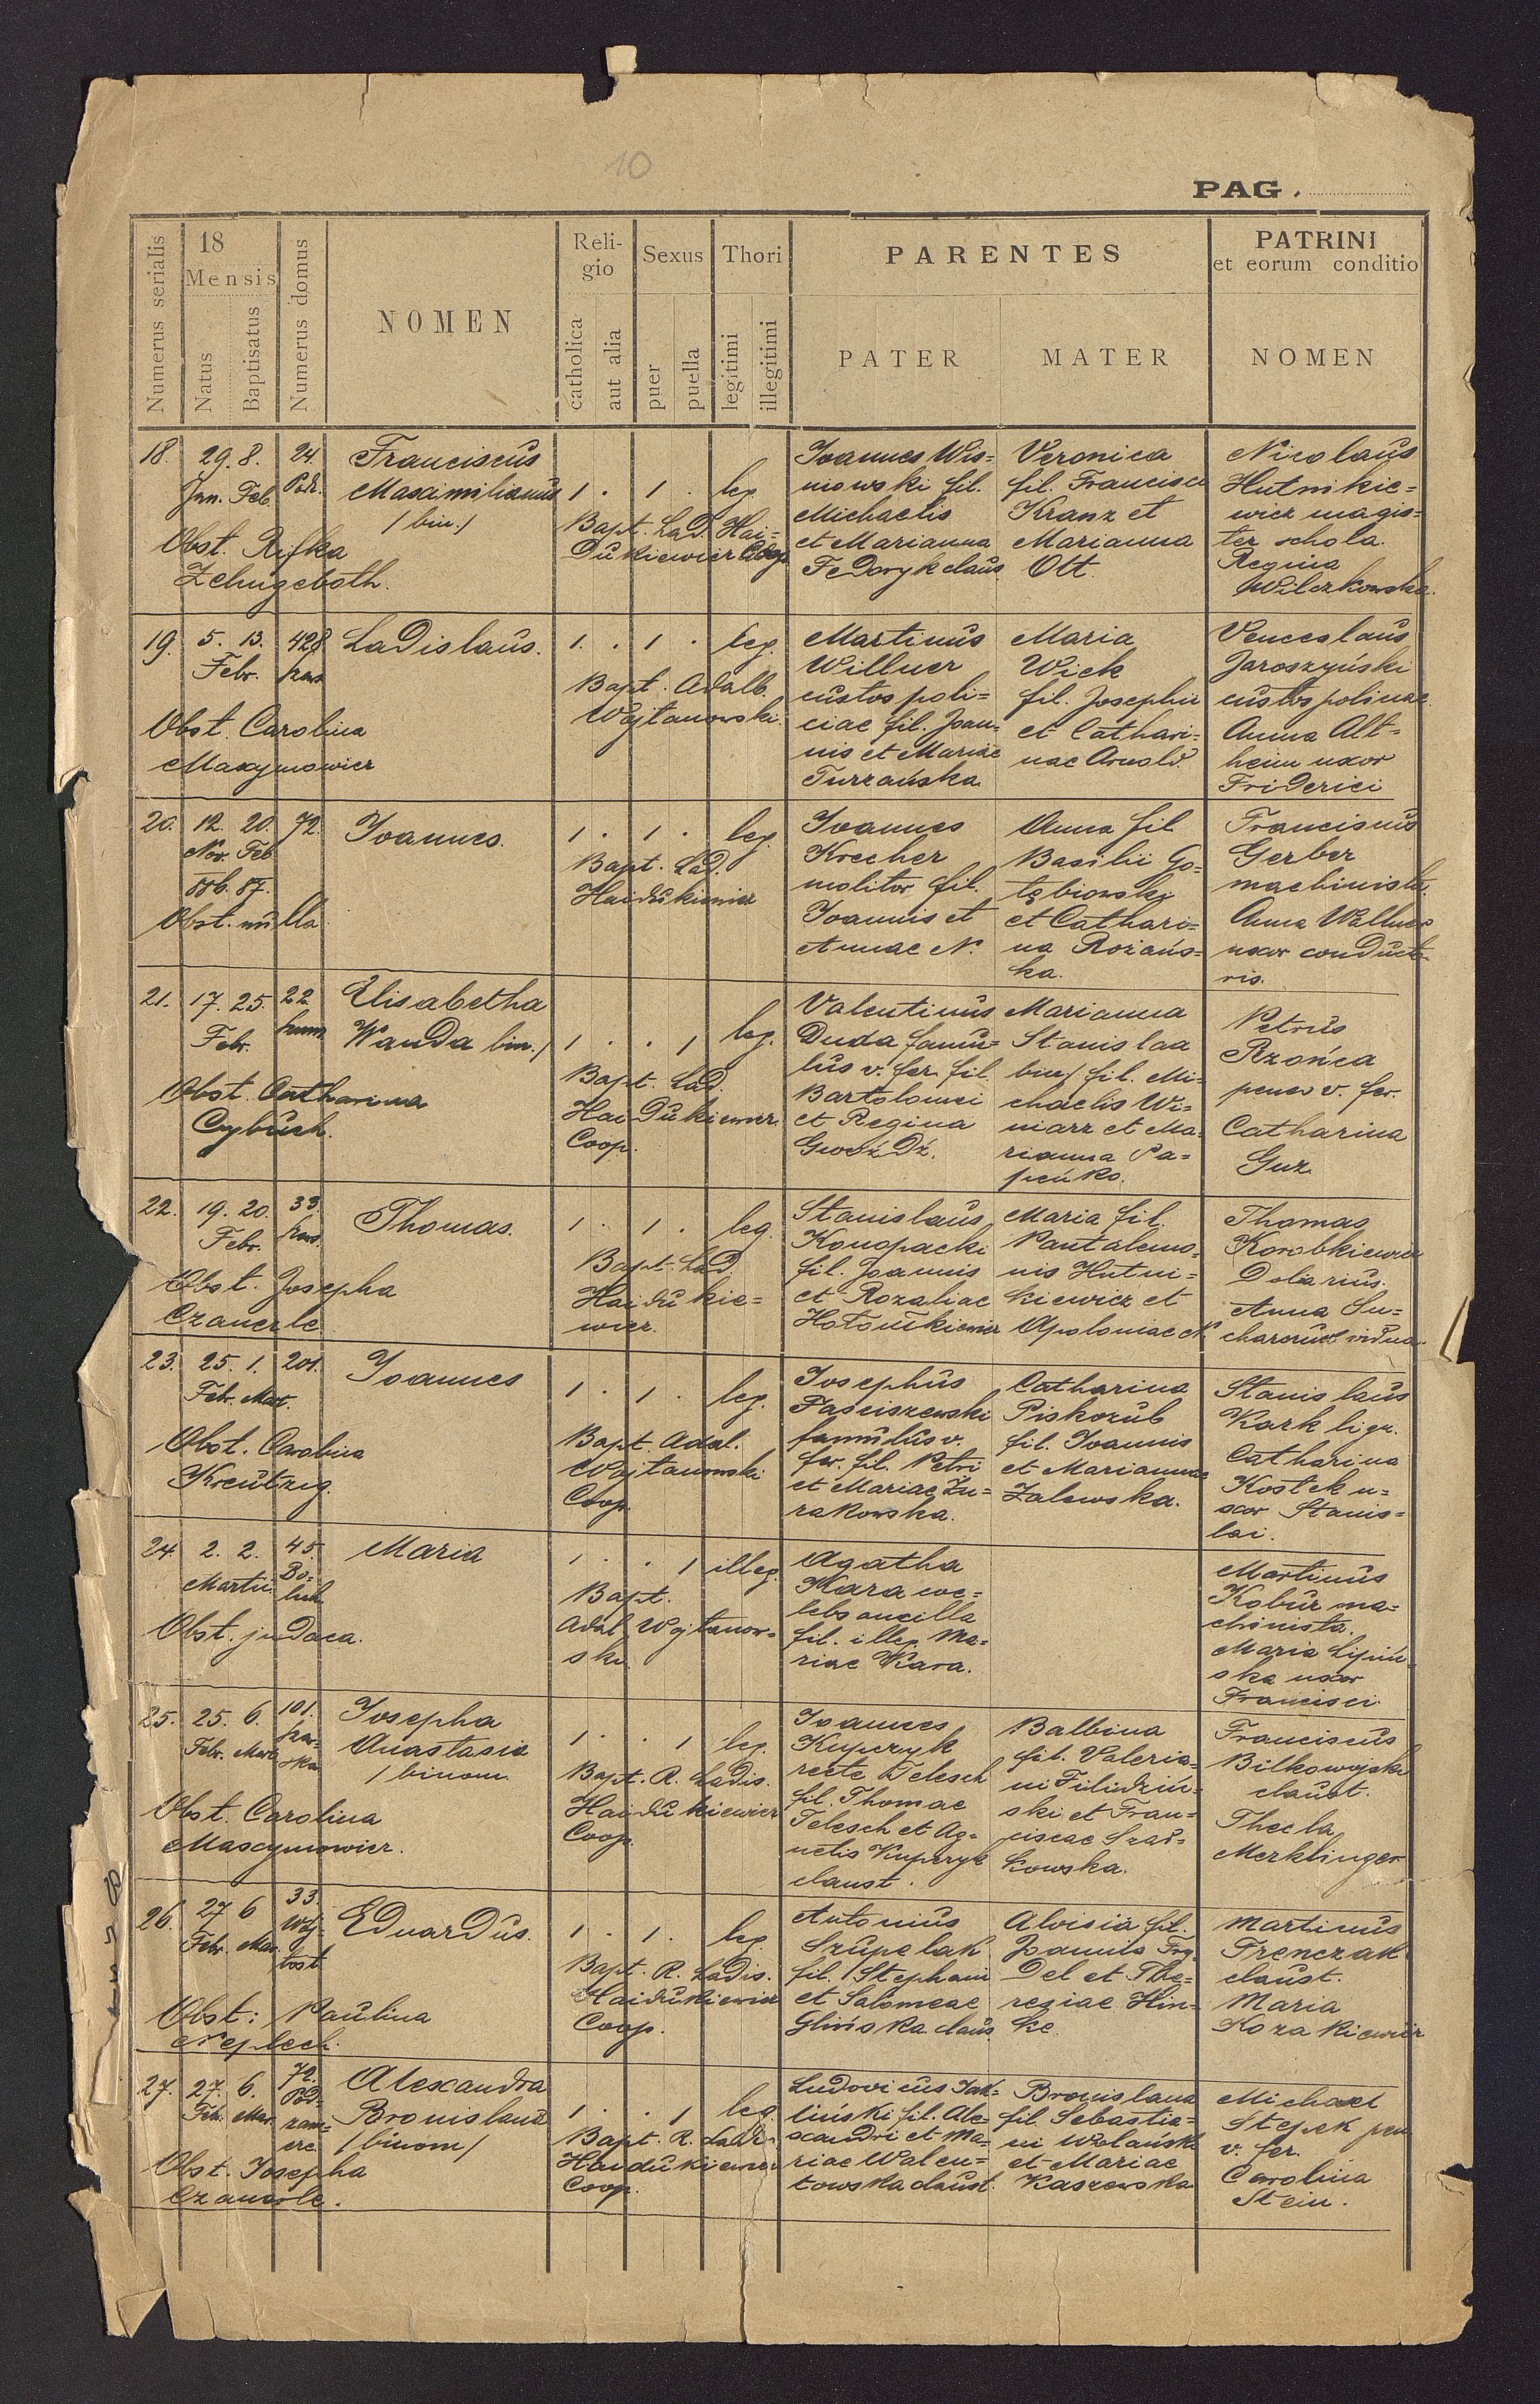 10
PAG.
Numerus serialis
18
Mensis
Natus
Baptisatus
Numerus domus
NOMEN
Religio
catholica
aut alia
Sexus
puer
puella
Thori
legitimi
illegitimi
PARENTES
PATER
MATER
PATRINI
et eorum conditio
NOMEN
18.
29. 8.
Jan. Feb.
24.
Franciscus
Maximilianus
/bin./
Obst. Rifka
Zelnigeboth.
1 . 1 . leg.
Bapt. Lad. Hai=
dukiewicz Coop.
Joannes Wis=
niowski fil.
Michaelis
et Marianna
Fedoryk claus
Veronica
fil. Francisci
Kranz et
Marianna
Ott.
Nicolaus
Hutnikie=
wicz magis=
ter schola.
Regina
Wilczkowska.
19.
5. 13.
Febr.
428
Ladislaus.
Obst. Carolina
Maxymowicz
1. . 1 . leg.
Bapt. Adalb.
Wojtanowski.
Martinus
Willner
custos poli=
ciae fil. Joan=
nis et Mariae
Turzańska
Maria
Wick
fil. Josephi
et Cathari=
nae Arnold.
Venceslaus
Jaroszyński
custos policiae
Anna Alt=
heim uxor
Friderici
20.
12. 20.
Nov. Feb
886. 87.
72.
Joannes.
Obst. nulla
1 . 1 . leg.
Bapt. Lad.
Haidukiewicz
Joannes
Krecher
molitor fil.
Joannis et
Annae N.
Anna fil
Basilii Go=
łębiowski
et Cathari=
na Rożańs=
ka.
Franciscus
Gerber
machinista.
Anna Wallner
uxor conducto=
ris.
21.
17. 25.
Febr.
22
Elisabetha
Wanda bin./
Obst. Catharina
Cybuch.
1 . . 1 leg.
Bapt. Lad.
Haidukiewicz
Coop.
Valentinus
Duda famu=
lus v. fer. fil.
Bartolomei
et Regina
Gwóźdź.
Marianna
Stanislaa
bin/ fil. Mi=
chaelis Wi=
niarz et Ma=
rianna Pa=
pieńko.
Petrus
Rzońca
penes v. fer.
Catharina
Guz
22.
19. 20.
Febr.
33
Thomas.
Obst. Josepha
Czanerle
1 . 1 . leg.
Bapt. Lad.
Haidukie=
wicz.
Stanislaus
Konopacki
fil. Joannis
et Rozaliae
Maria fil.
Pantalemo=
nis Hutni=
kiewicz et
Apoloniae N
Thomas
Korobkiewicz
Doliarius.
Anna Su=
vidua
23.
25. 1.
Feb. Mar.
201.
Joannes
Obst. Carolina
Kreutzig.
1 . 1 . leg.
Bapt. Adal.
Wojtanowski
Coop.
Josephus
Paściszewski
famulus v.
fer. fil. Petri
et Mariae Żu=
rakowska.
Catharina
Piskozub
fil. Joannis
et Mariannae
Zalewska.
Stanislaus
Kark ligr.
Catharina
Kostek u=
xor Stanis=
lai.
24.
2. 2.
Martii
45.
Maria
Obst. judaea.
1 . . 1 illeg.
Bapt.
Adal. Wojtanow=
ski
Agatha
Kara coe=
lebs ancilla
fil. illeg. Ma=
riae Kara.
Martinus
Kobur ma=
chinista.
Maria Lipiń=
ska uxor
Francisci.
25.
25. 6.
Febr. Mar.
101.
Josepha
Anastasia
/binom.
Obst. Carolina
Maxymowicz.
1 . . 1 leg.
Bapt. R. Ladis.
Haidukiewicz
Coop.
Joannes
Kupczyk
recte Telesch
fil. Thomae
Telesch et Ag=
netis Kupczyk
claust.
Balbina
fil. Valeria=
ni Filidziń=
ski et Fran=
ciscae Szaf=
kowska.
Franciscus
claust.
Thecla
Merklinger
26.
27 6
Febr. Mar.
33.
Eduardus.
Obst: Paulina
Neplech.
1 . 1 . leg.
Bapt. R. Ladis.
Haidukiewicz
Coop.
Antonius
Szupelak
fil. Stephani
et Salomeae
Glińska claus
Aloisia fil.
Joannis Fry=
del et The=
resiae Hin=
ke
Martinus
Trenczak
claust.
Maria
Kozakiewicz
27.
27. 6.
Feb. Mar.
72.
Pod=
zam=
cze
Alexandra
Bronislaua
/binom/
Obst. Josepha
Czanerle.
1 . . 1 leg.
Bapt. R. Ladis
Haidukiewicz
Coop.
Ludovicus Jak=
liński fil. Ale=
xandri et Ma=
riae Walen=
towska claust.
Bronislaua
fil. Sebastia=
ni Wolański
et Mariae
Kaszewska
Michael
Stepek pen
v. fer.
Carolina
Stein.